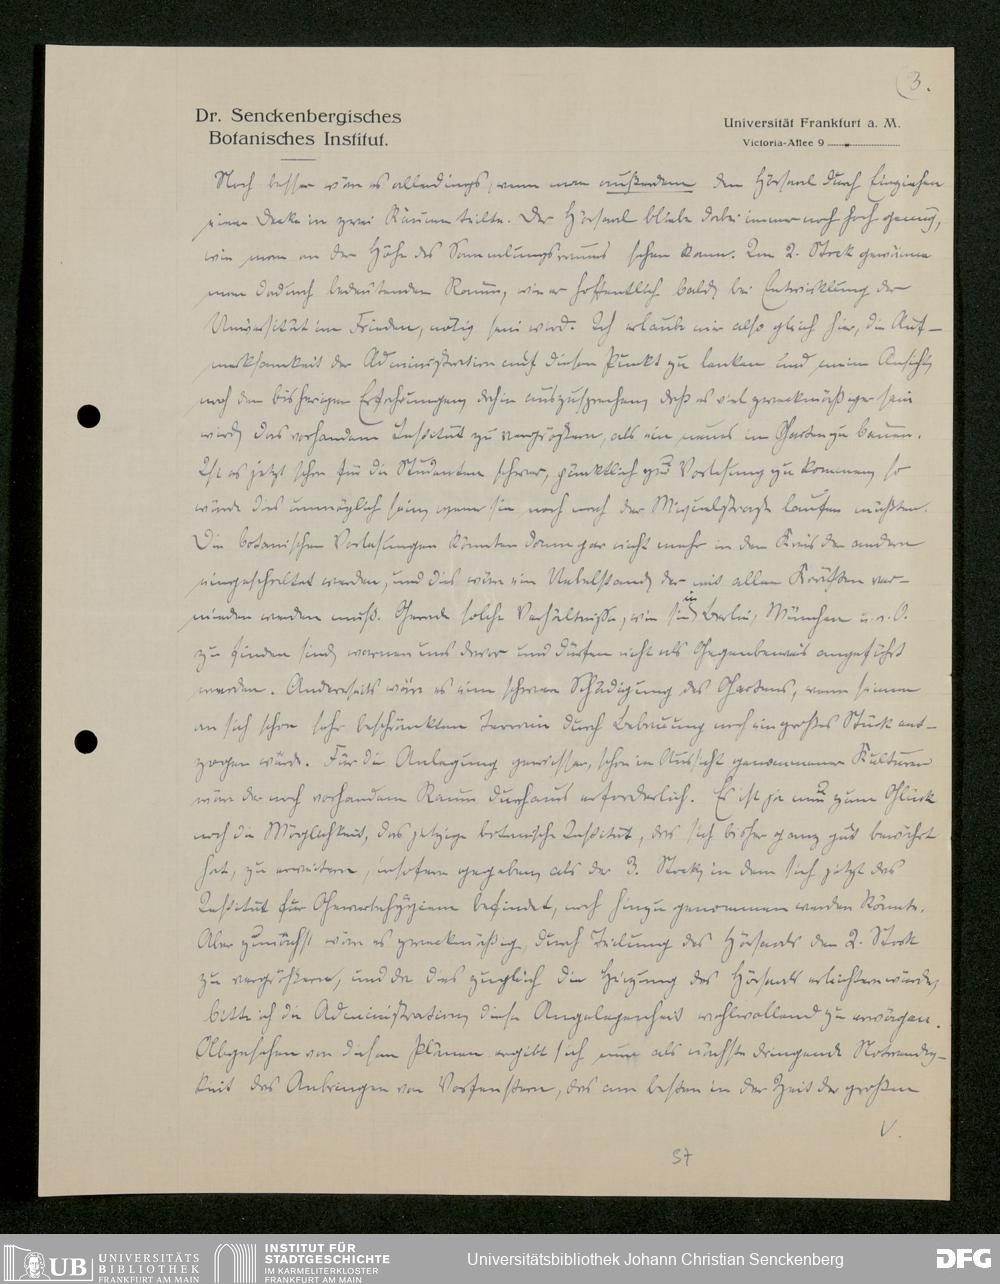 3.
Dr. Senckenbergisches
Botanisches Institut.
Universität Frankfurt a. M.
Victoria-Allee 9
Noch besser wäre es allerdings, wenn man außerdem den Hörsaal durch Einziehen
einer Decke in zwei Räume teilte. Der Hörsaal bliebe dabei immer noch hoch genug,
wie man an der Höhe des Sammlungsraums sehen kann. Im 2. Stock gewänne
man dadurch bedeutenden Raum, wie er hoffentlich bald, bei Entwicklung der
Universität im Frieden, nötig sein wird. Ich erlaube mir also gleich hier, die Auf-
merksamkeit der Administration auf diesen Punkt zu lenken und meine Ansicht,
nach den bisherigen Erfahrungen, dahin auszusprechen, daß es viel zweckmäßiger sein
wird, das vorhandene Institut zu vergrößern, als ein neues im Garten zu bauen.
Ist es jetzt schon für die Studenten schwer, pünktlich zur Vorlesung zu kommen, so
würde dies unmöglich sein, wenn sie noch nach der Miquelstraße laufen müßten.
Die botanischen Vorlesungen könnten dann gar nicht mehr in den Kreis der andern
eingeschaltet werden, und dies wäre ein Uebelstand, der mit allen Kräften ver-
mieden werden muß. Gerade solche Verhältnisse, wie sie in Berlin, München u. a. O.
zu finden sind, warnen uns davor und dürfen nicht als Gegenbeweis angeführt
werden. Andererseits wäre es eine schwere Schädigung des Gartens, wenn seinem
an sich schon sehr beschränkten Terrain durch Bebauung noch ein großes Stück ent-
zogen würde. Für die Anlegung gewisser, schon in Aussicht genommener Kulturen
wäre der noch vorhandene Raum durchaus erforderlich. Es ist ja nun zum Glück
noch die Möglichkeit, das jetzige botanische Institut, das sich bisher ganz gut bewährt
hat, zu erweitern, insofern gegeben, als der 3. Stock, in dem sich jetzt das
Institut für Gewerbehygiene befindet, noch hinzu genommen werden könnte.
Aber zunächst wäre es zweckmäßig, durch Teilung des Hörsaals den 2. Stock
zu vergrößern, und da dies zugleich die Heizung des Hörsaals erleichtern würde,
bitte ich die Administration, diese Angelegenheit wohlwollend zu erwägen.
Abgesehen von diesen Plänen ergibt sich nun als nächste dringende Notwendig-
keit das Anbringen von Vorfenstern, das am besten in der Zeit der großen
V.
57
UB UNIVERSITÄTS
BIBLIOTHEK
FRANKFURT AM MAIN
INSTITUT FÜR
STADTGESCHICHTE
IM KARMELITERKLOSTER
FRANKFURT AM MAIN
Universitätsbibliothek Johann Christian Senckenberg
DFG